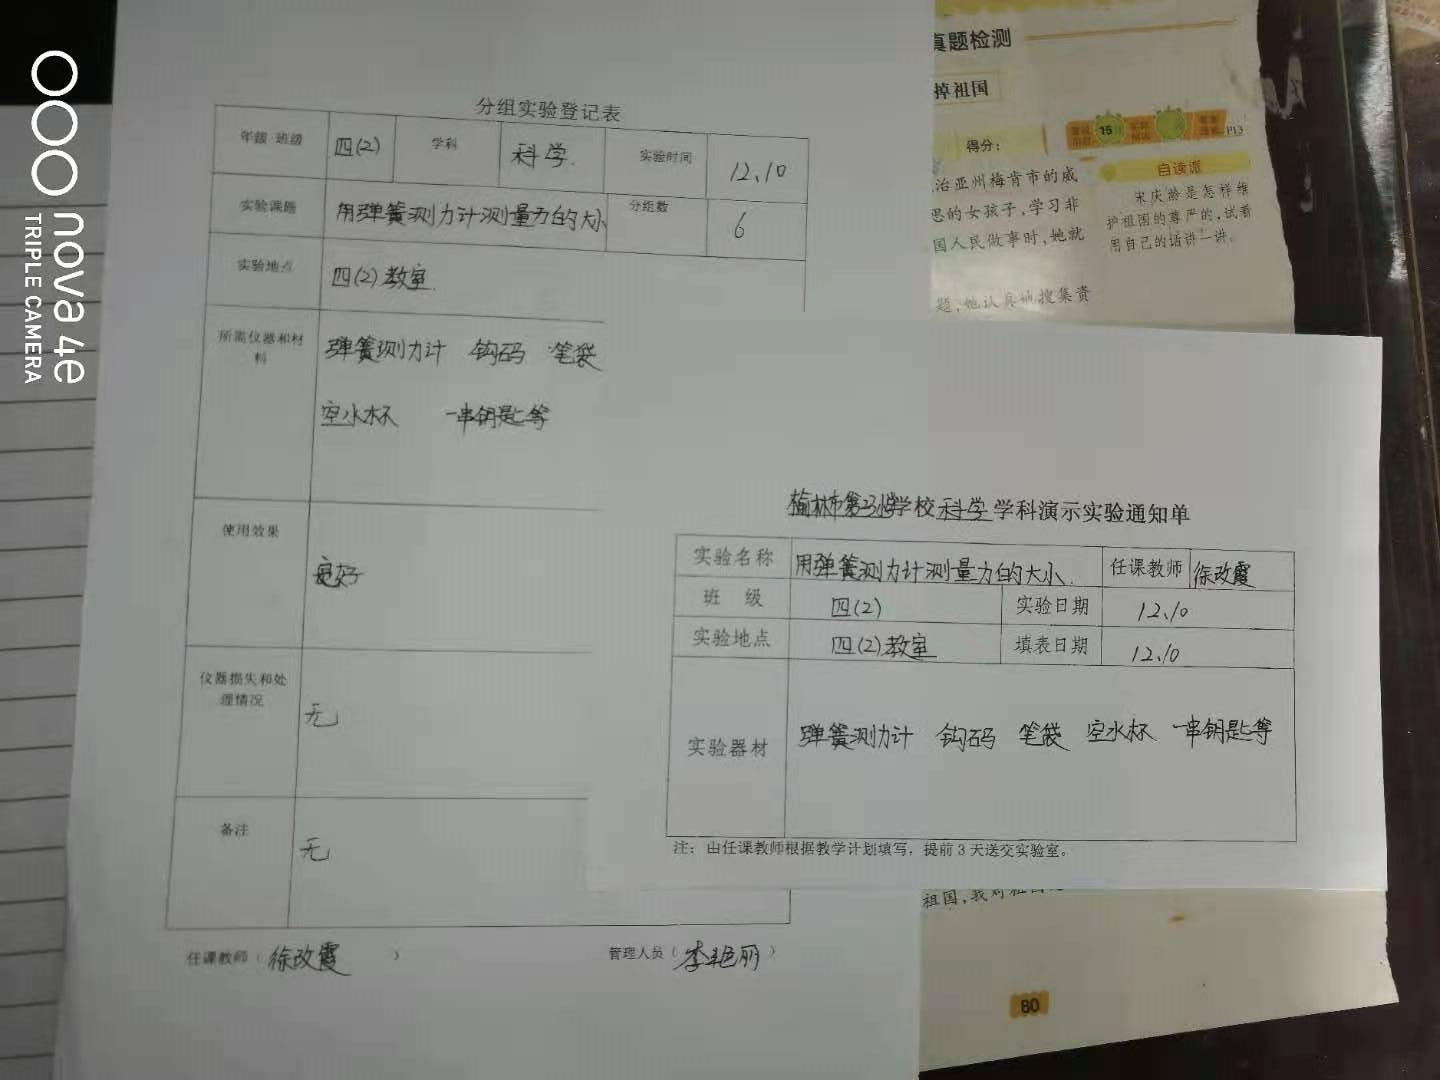 nova 4e
TRIPLE CAMERA
分组实验登记表
年级 班级 四(2) 学科 科学. 实验时间 12、10
实验课题 用弹簧测力计测量力的大小 分组数 6
实验地点 四(2)教室.
所需仪器和材料 弹簧测力计 钩码 笔袋
空水杯 一串钥匙等
使用效果 良好
仪器损失和处理情况 无
备注 无
任课教师（徐改霞） 管理人员（李艳丽）
学校科学学科演示实验通知单
实验名称 用弹簧测力计测量力的大小. 任课教师 徐改霞
班 级 四(2) 实验日期 12、10
实验地点 四(2)教室 填表日期 12、10
实验器材 弹簧测力计 钩码 笔袋 空水杯 一串钥匙等
注：由任课教师根据教学计划填写，提前3天送交实验室。
真题检测
掉祖国
15
得分：
P13
治亚州梅肯市的威
思的女孩子,学习非
国人民做事时,她就
题,她认真地搜集资
自读派
宋庆龄是怎样维
护祖国的尊严的,试着
用自己的话讲一讲。
祖国,我对祖国
80